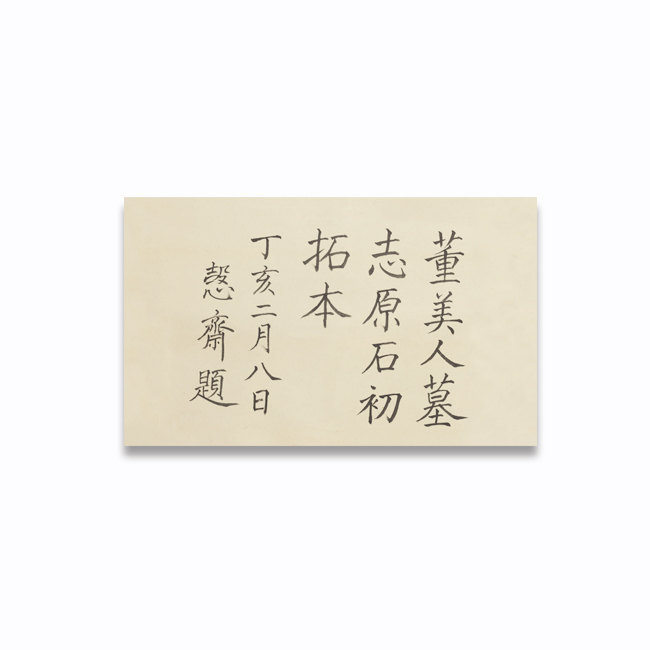 董美人墓
志原石初
拓本
丁亥二月八日
愙齋題